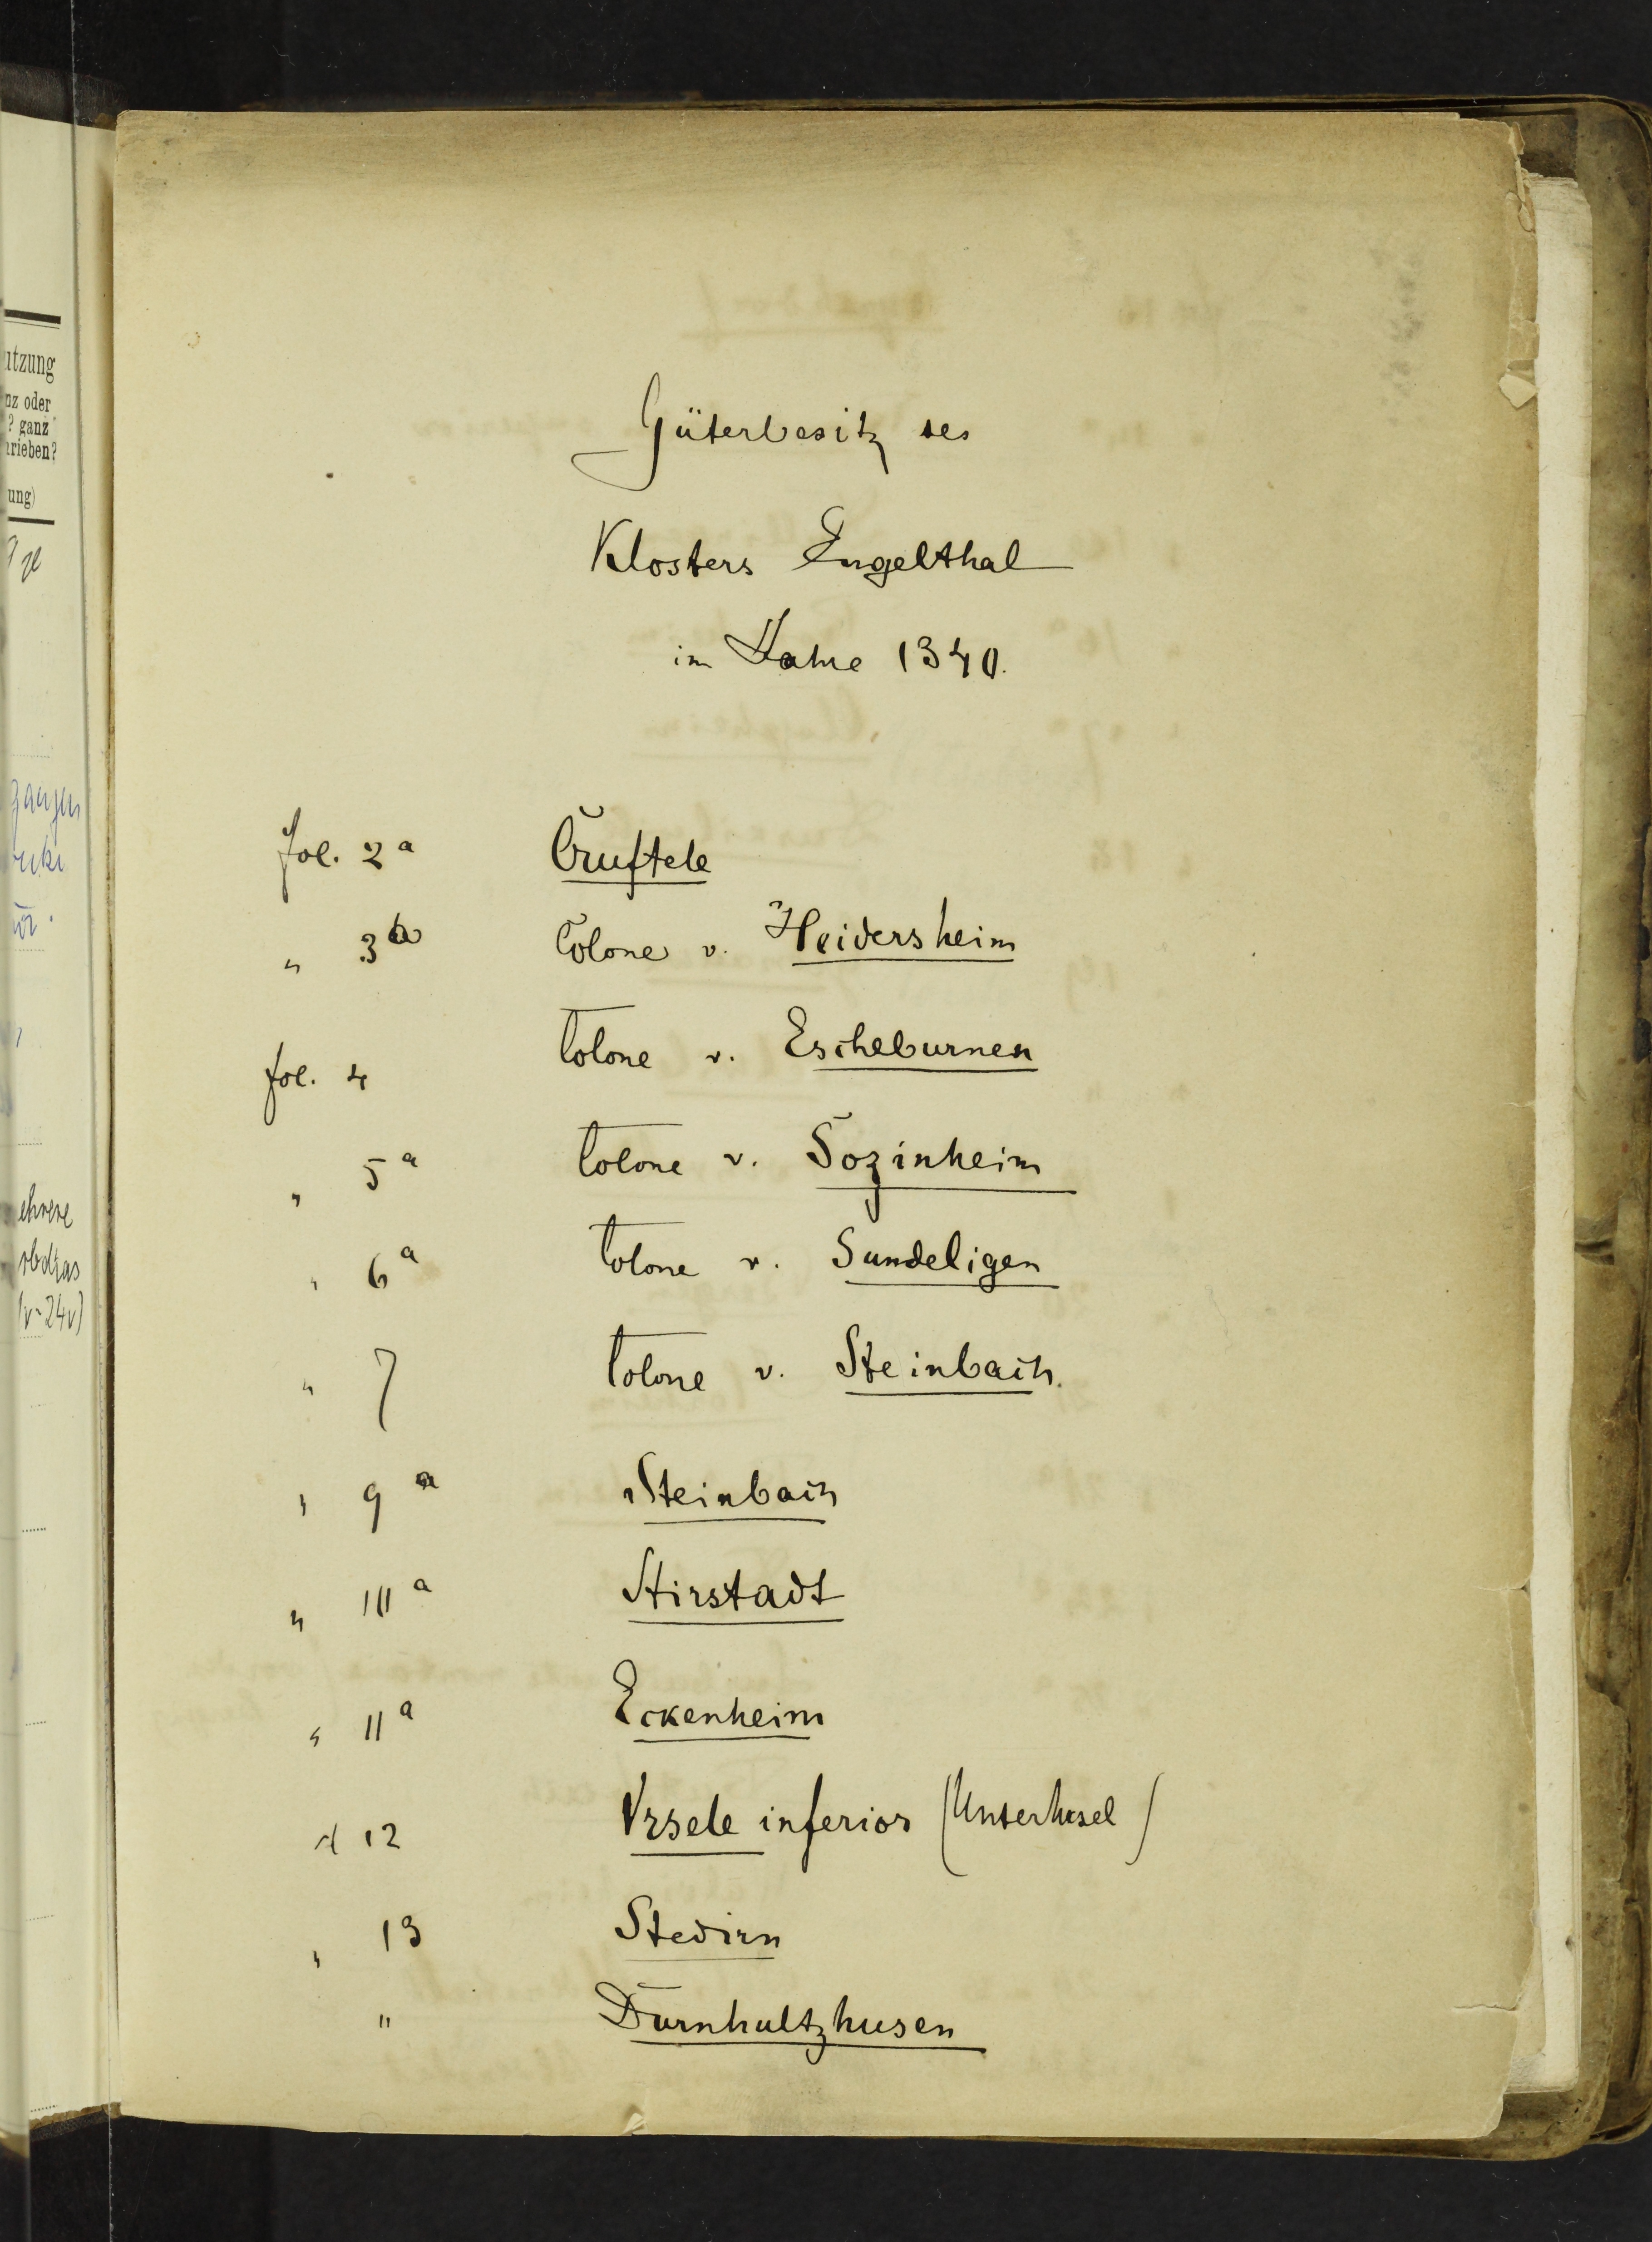 utzung
nz oder
? ganz
rieben?
ung)
Güterbesitz des
Klosters Engelthal
im Jahre 1340.
fol. 2a Cruftele
" 3a Colone v. Heidersheim
fol. 4 Colone v. Escheburnen
" 5a Colone v. Sozinheim
" 6a Colone v. Sundeligen
" 7 Colone v. Steinbach.
" 9a Steinbach
" 10a Stirstadt
" 11a Eckenheim
" 12 Vrsele inferior (Unterursel)
" 13 Stedirn
" Durnhultzhusen
ehrere
(v-24v)